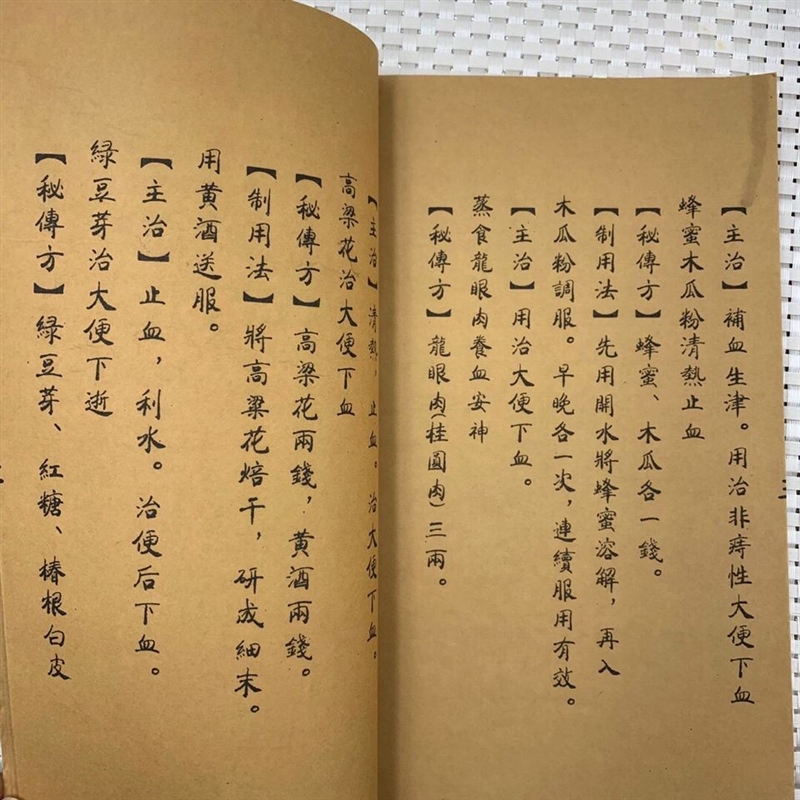 【主治】補血生津。用治非痔性大便下血
蜂蜜木瓜粉清熱止血
【秘傳方】蜂蜜、木瓜各一錢。
【制用法】先用開水將蜂蜜溶解，再入
木瓜粉調服。早晚各一次，連續服用有效。
【主治】用治大便下血。
蒸食龍眼肉養血安神
【秘傳方】龍眼肉(桂圓肉)三兩。
【主治】清熱，止血。治大便下血。
高梁花治大便下血
【秘傳方】高梁花兩錢，黄酒兩錢。
【制用法】將高粱花焙干，研成細末。
用黄酒送服。
【主治】止血，利水。治便后下血。
綠豆芽治大便下逝
【秘傳方】綠豆芽、紅糖、椿根白皮